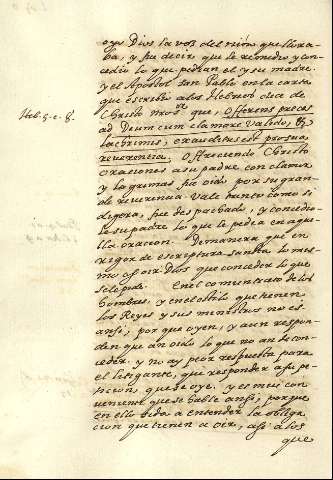 oyo Dios la voz del niño que llora-
ba, y fue decir que le remedió y con-
cedio lo que pedian el y su madre.
y el Apostol San Pablo en la carta
que escribio a los Hebreos dice de
Heb. 5. c. 8.
Christo nro sr que, offerens preces
ad Deum cum clamore valedo, &
lachrimis, exauditus est pro sua
reverencia, ofreciendo Christo
oraciones a su padre con clamor
y lagrimas fue oido por su gran-
de reverencia. Vale tanto como si
digera, fue despachado, y concedio-
le su padre lo que le pedia en aque-
lla oracion. De manera que en
rigor de escreptura santa lo mes-
mo es oir Dios que conceder lo que
se le pide. En el comun trato de los
hombres, y en el estilo que tienen
los Reyes y sus ministros no es
ansi; por que oyen, y aun respon-
den que an oido lo que no an de con-
ceder. y no ay peor respuesta para
el litigante, que responder a su pe-
ticion, que se oye. y es mui con-
veniente que se hable ansi; porque
en ello se da a entender la obliga-
cion que tienen a oir, asi a los
que